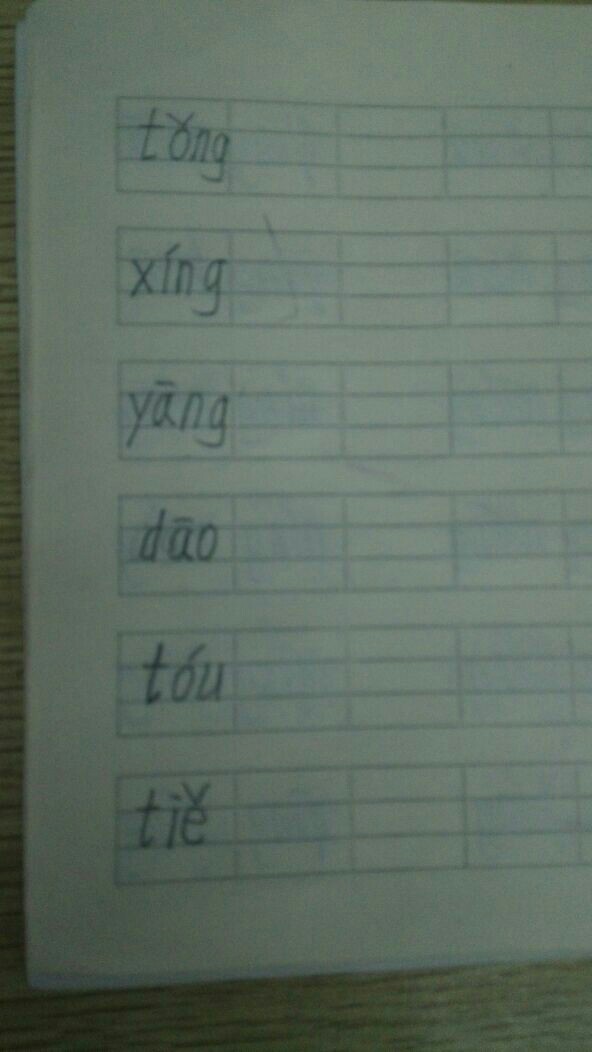 tǒng
xíng
yāng
dāo
tóu
tiě